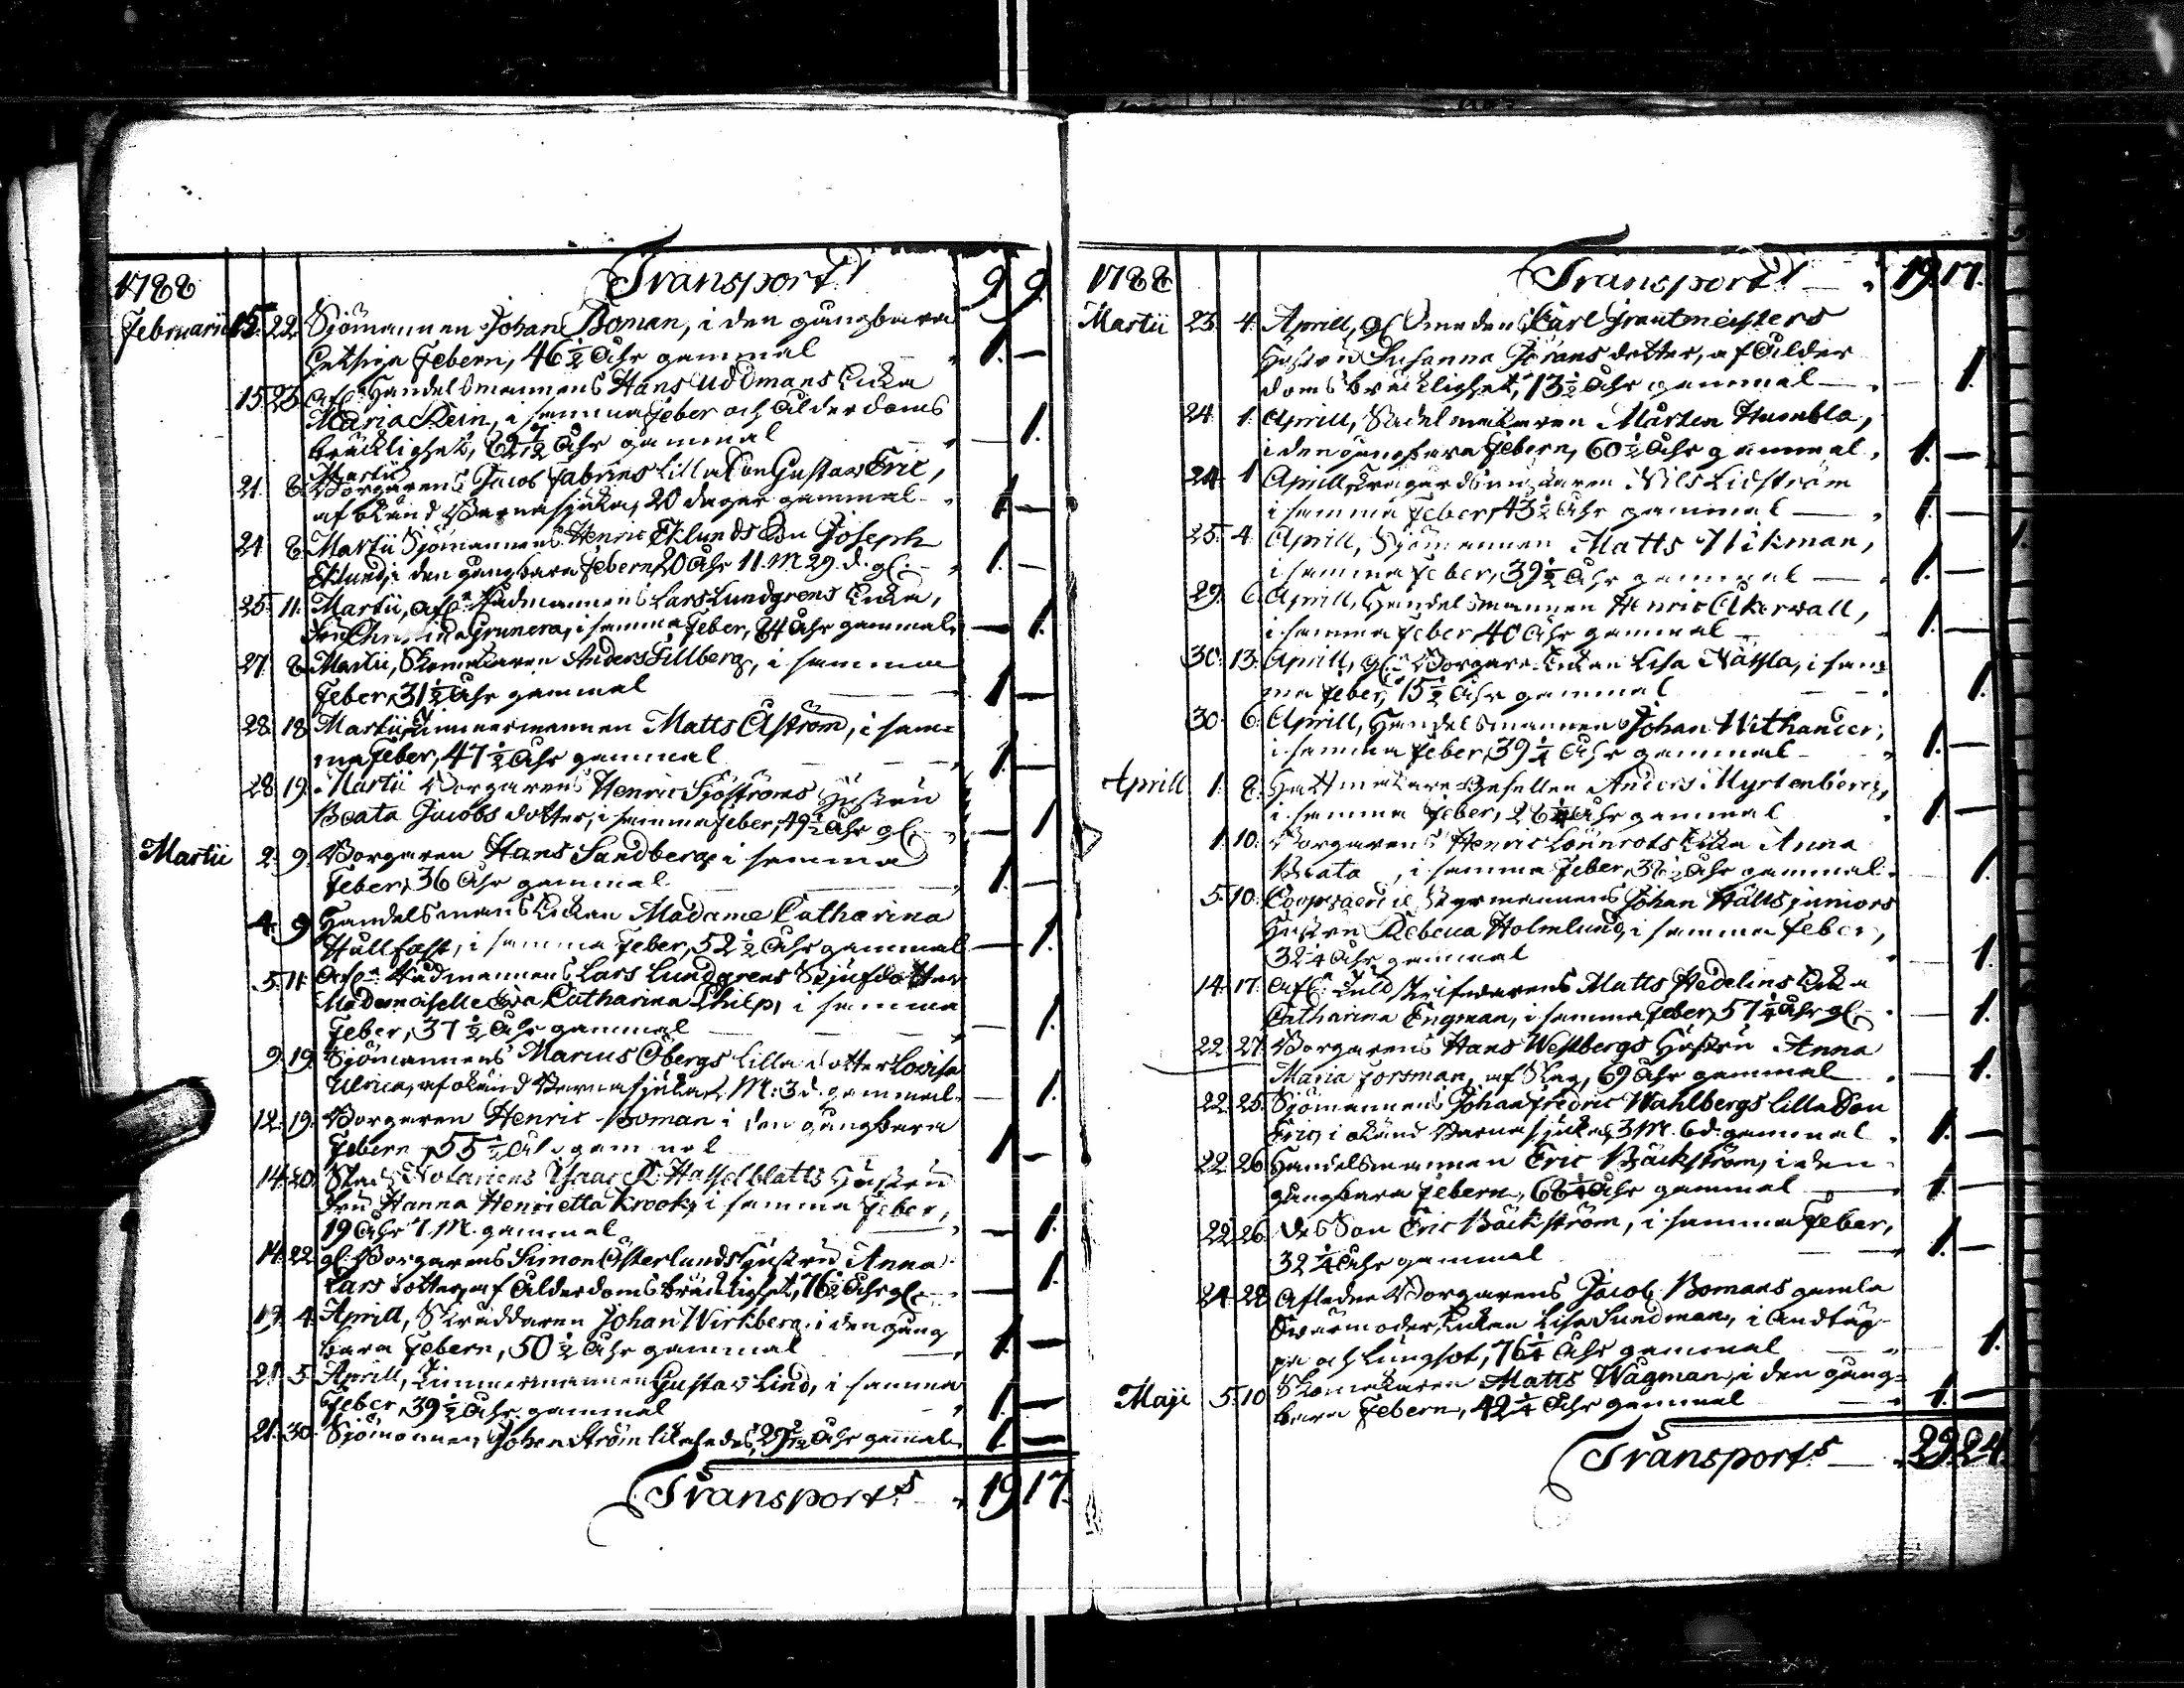 1788 Transport 9. 9.
Februarii 15. 22. Sjömannen Johan Boman, i den gångbara
hetsiga Febern, 46 1/2 Åhr gammal 1. —
15. 23. Afl. Handelsmannens Hans Uddmans Enka
Maria Rein, i samma Feber och Ålderdoms
bräcklighet, 62 7/12 Åhr gammal — 1.
Martii
21. 8. Borgarens Jacob Fabrins lilla Son Gustav Eric,
af okänd Barnasjuka, 20 dagar gammal 1. —
24. 8. Martii Sjömannens Henric Eklunds Son Joseph
Eklund, i den gångbara Febern 20 Åhr 11. M. 29. d. gl. 1. —
25. 11. Martii, Afl. Rådmannens Lars Lundgrens Enka,
Fru Christina Grunera, i samma Feber, 84 Åhr gammal — 1.
27. 8. Martii, Skomakaren Anders Fillberg, i samma
Feber, 31 1/2 Åhr gammal 1. —
28. 18. Martii, Timmermannen Matts Åström, i sam=
ma Feber, 47 1/2 Åhr gammal 1. —
28. 19. Martii Borgarens Henric Sjöströms Hustru
Beata Jacobs dotter, i samma Feber, 49 1/2 Åhr gl. — 1.
Martii 2. 9. Borgaren Hans Sandberg i samma
Feber, 36 Åhr gammal 1. —
4. 9. Handelsmans Enkan Madame Catharina
Hallfast, i samma Feber, 52 1/2 Åhr gammal — 1.
5. 11. Afl. Rådmannens Lars Lundgrens Stjufdotter
Mademoiselle Eva Catharina Chilp, i samma
Feber, 37 1/2 Åhr gammal — 1.
9. 19. Sjömannens Marius Öbergs lilla dotter Lovisa
Ulrica, af okänd Barnasjuka, M. 3 d. gammal — 1.
12. 19. Borgaren Henric Boman i den gångbara
Febern, 55 1/2 Åhr gammal 1. —
14. 20. Stads Notariens Isaac R. Hasselblatts Hustru
Fru Hanna Henrietta Krook, i samma Feber,
19 Åhr 7. M. gammal — 1.
14. 22. gl. Borgarens Simon Österlunds Hustru Anna
Lars dotter, af Ålderdoms bräcklighet, 76 1/2 Åhr gl. — 1.
19. 4. Aprill, Skräddaren Johan Wirkberg, i den gång
bara Febern, 50 1/2 Åhr gammal 1. —
21. 5. Aprill, Timmermannen Gustav Lind, i samma
Feber, 39 1/2 Åhr gammal 1. —
21. 30. Sjömannen Johan Ström likaledes, Åhr gammal 1. —
Transport 19 17.
1788 Transport 19. 17.
Martii 23. 4. Aprill, gl. Smeden Carl Grautmeisters
Hustru Susanna Görans dotter, af Ålder
doms bräcklighet, 73 1/2 Åhr gammal — 1.
24. 1. Aprill, Sadelmakaren Mårten Humbla,
i den gångbara Febern, 60 1/2 Åhr gammal 1. —
24. 1. Aprill, Nils Lidström
i samma Feber, 43 1/2 Åhr gammal 1. —
25. 4. Aprill, Sjömannen Matts Wikman,
i samma Feber, 39 1/2 Åhr gammal 1. —
29. 6. Aprill, Handelsmannen Henric Åkervall,
i samma Feber, 40 Åhr gammal 1. —
30. 13. Aprill, gl. Borgare Enkan Lisa Nässla, i sam=
ma Feber, 75 1/2 Åhr gammal — 1.
30. 6. Aprill, Handelsmannen Johan Withander,
i samma Feber, 39 1/4 Åhr gammal 1. —
Aprill 1. 8. Hattmakare Gesellen Anders Myrtenberg,
i samma Feber, 26 1/4 Åhr gammal 1. —
1. 10. Borgarens Henric Lönnrots Enka Anna
Beata , i samma Feber, 1/2 Åhr gammal — 1.
5. 10. Coopvaerdie Styrmannens Johan Hälls juniors
Hustru Rebecca Holmlund, i samma Feber,
32 1/4 Åhr gammal — 1.
14. 17. Afl. Tullskrifvarens Matts Hedelins Enka
Catharina Engman, i samma Feber, 57 1/4 Åhr gl. — 1.
22. 27. Borgarens Hans Westbergs Hustru Anna
Maria Forsman, af Slag, 69 Åhr gammal — 1.
22. 25. Sjömannens Johan Fredric Wahlbergs lilla Son
Eric, i okänd Barnasjuka, 3 M. 6 d. gammal 1. —
22. 26. Handelsmannen Eric Bäckström, i den
gångbara Febern, 68 1/4 Åhr gammal 1. —
22. 26. Des Son Eric Bäckström, i samma Feber,
32 1/4 Åhr gammal 1. —
24. 28. Afledne Borgarens Jacob Bomans gamla
Svärmoder, Enkan Lisa Sundman, i Andtäp-
pa och Lungsot, 76 1/4 Åhr gammal — 1.
Maji 5. 10. Skomakaren Matts Wågman, i den gång=
bara Febern, 42 1/4 Åhr gammal 1. —
Transport 29. 24.